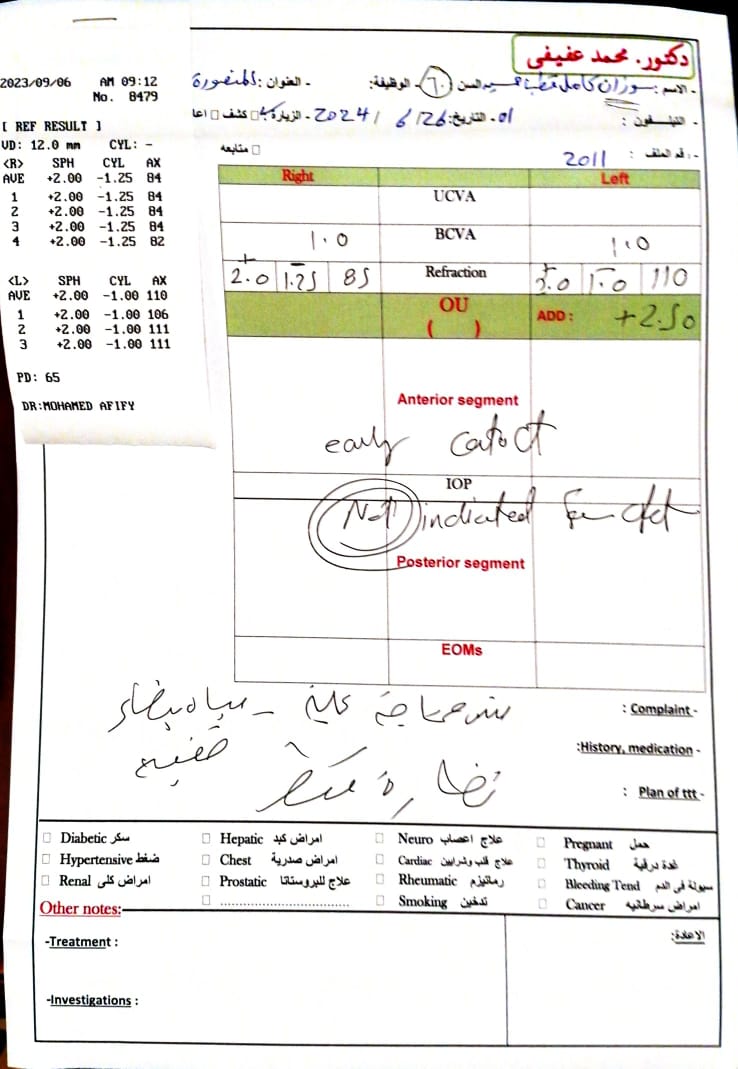 2023/09/06 AM 09:12
No. 8479
[ REF RESULT ]
VD: 12.0 mm CYL: -
<R> SPH CYL AX
AVE +2.00 -1.25 84
1 +2.00 -1.25 84
2 +2.00 -1.25 84
3 +2.00 -1.25 84
4 +2.00 -1.25 82
<L> SPH CYL AX
AVE +2.00 -1.00 110
1 +2.00 -1.00 106
2 +2.00 -1.00 111
3 +2.00 -1.00 111
PD: 65
DR:MOHAMED AFIFY
دكتور. محمد عفيفي
- الاسم: سوزان كامل قطب السن: ٦٠ - الوظيفة: - العنوان: المنصورة
التليفون: - التاريخ: 2024/6/26 - الزيارة: كشف □ اعا
□ متابعه
- رقم الملف: 2011
Right Left
UCVA
1.0 BCVA 1.0
+2.0 -1.25 85 Refraction +2.0 -1.0 110
OU
( ) ADD: +2.50
Anterior segment
early
IOP
Not indicated for
Posterior segment
EOMs
مياه بيضاء
: Complaint -
خفيفه
:History, medication -
نضارة
: Plan of ttt -
□ Diabetic سكر □ Hepatic امراض كبد □ Neuro علاج اعصاب □ Pregnant حمل
□ Hypertensive ضغط □ Chest امراض صدرية □ Cardiac علاج قلب وشرايين □ Thyroid غدة درقية
□ Renal امراض كلى □ Prostatic علاج للبروستاتا □ Rheumatic رماتيزم □ Bleeding Tend سيولة فى الدم
□ ................................ □ Smoking تدخين □ Cancer امراض سرطانيه
Other notes:
-Treatment :
الاعادة:
-Investigations :